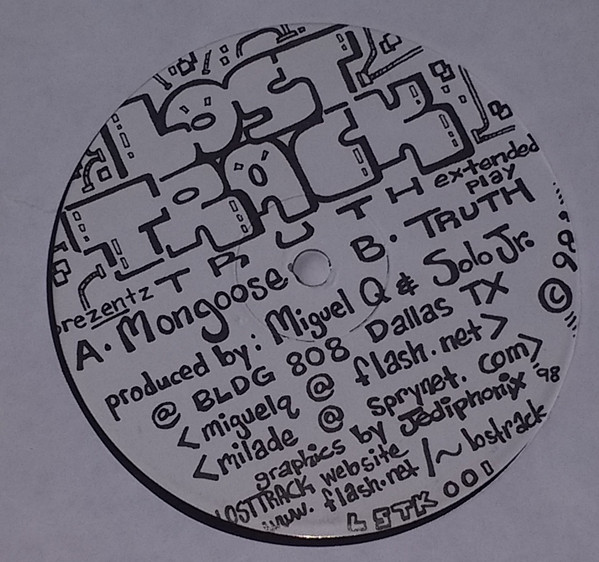 LOST
TRACK
prezentz TRUTH extended play
A. Mongoose B. TRUTH
produced by: Miguel Q & Solo Jr.
@ BLDG 808 Dallas TX
<miguelq @ flash.net>
<milade @ sprynet.com>
graphics by Jediphonix '98
LOSTTRACK website
www.flash.net/~lostrack
LSTK 001
© 98